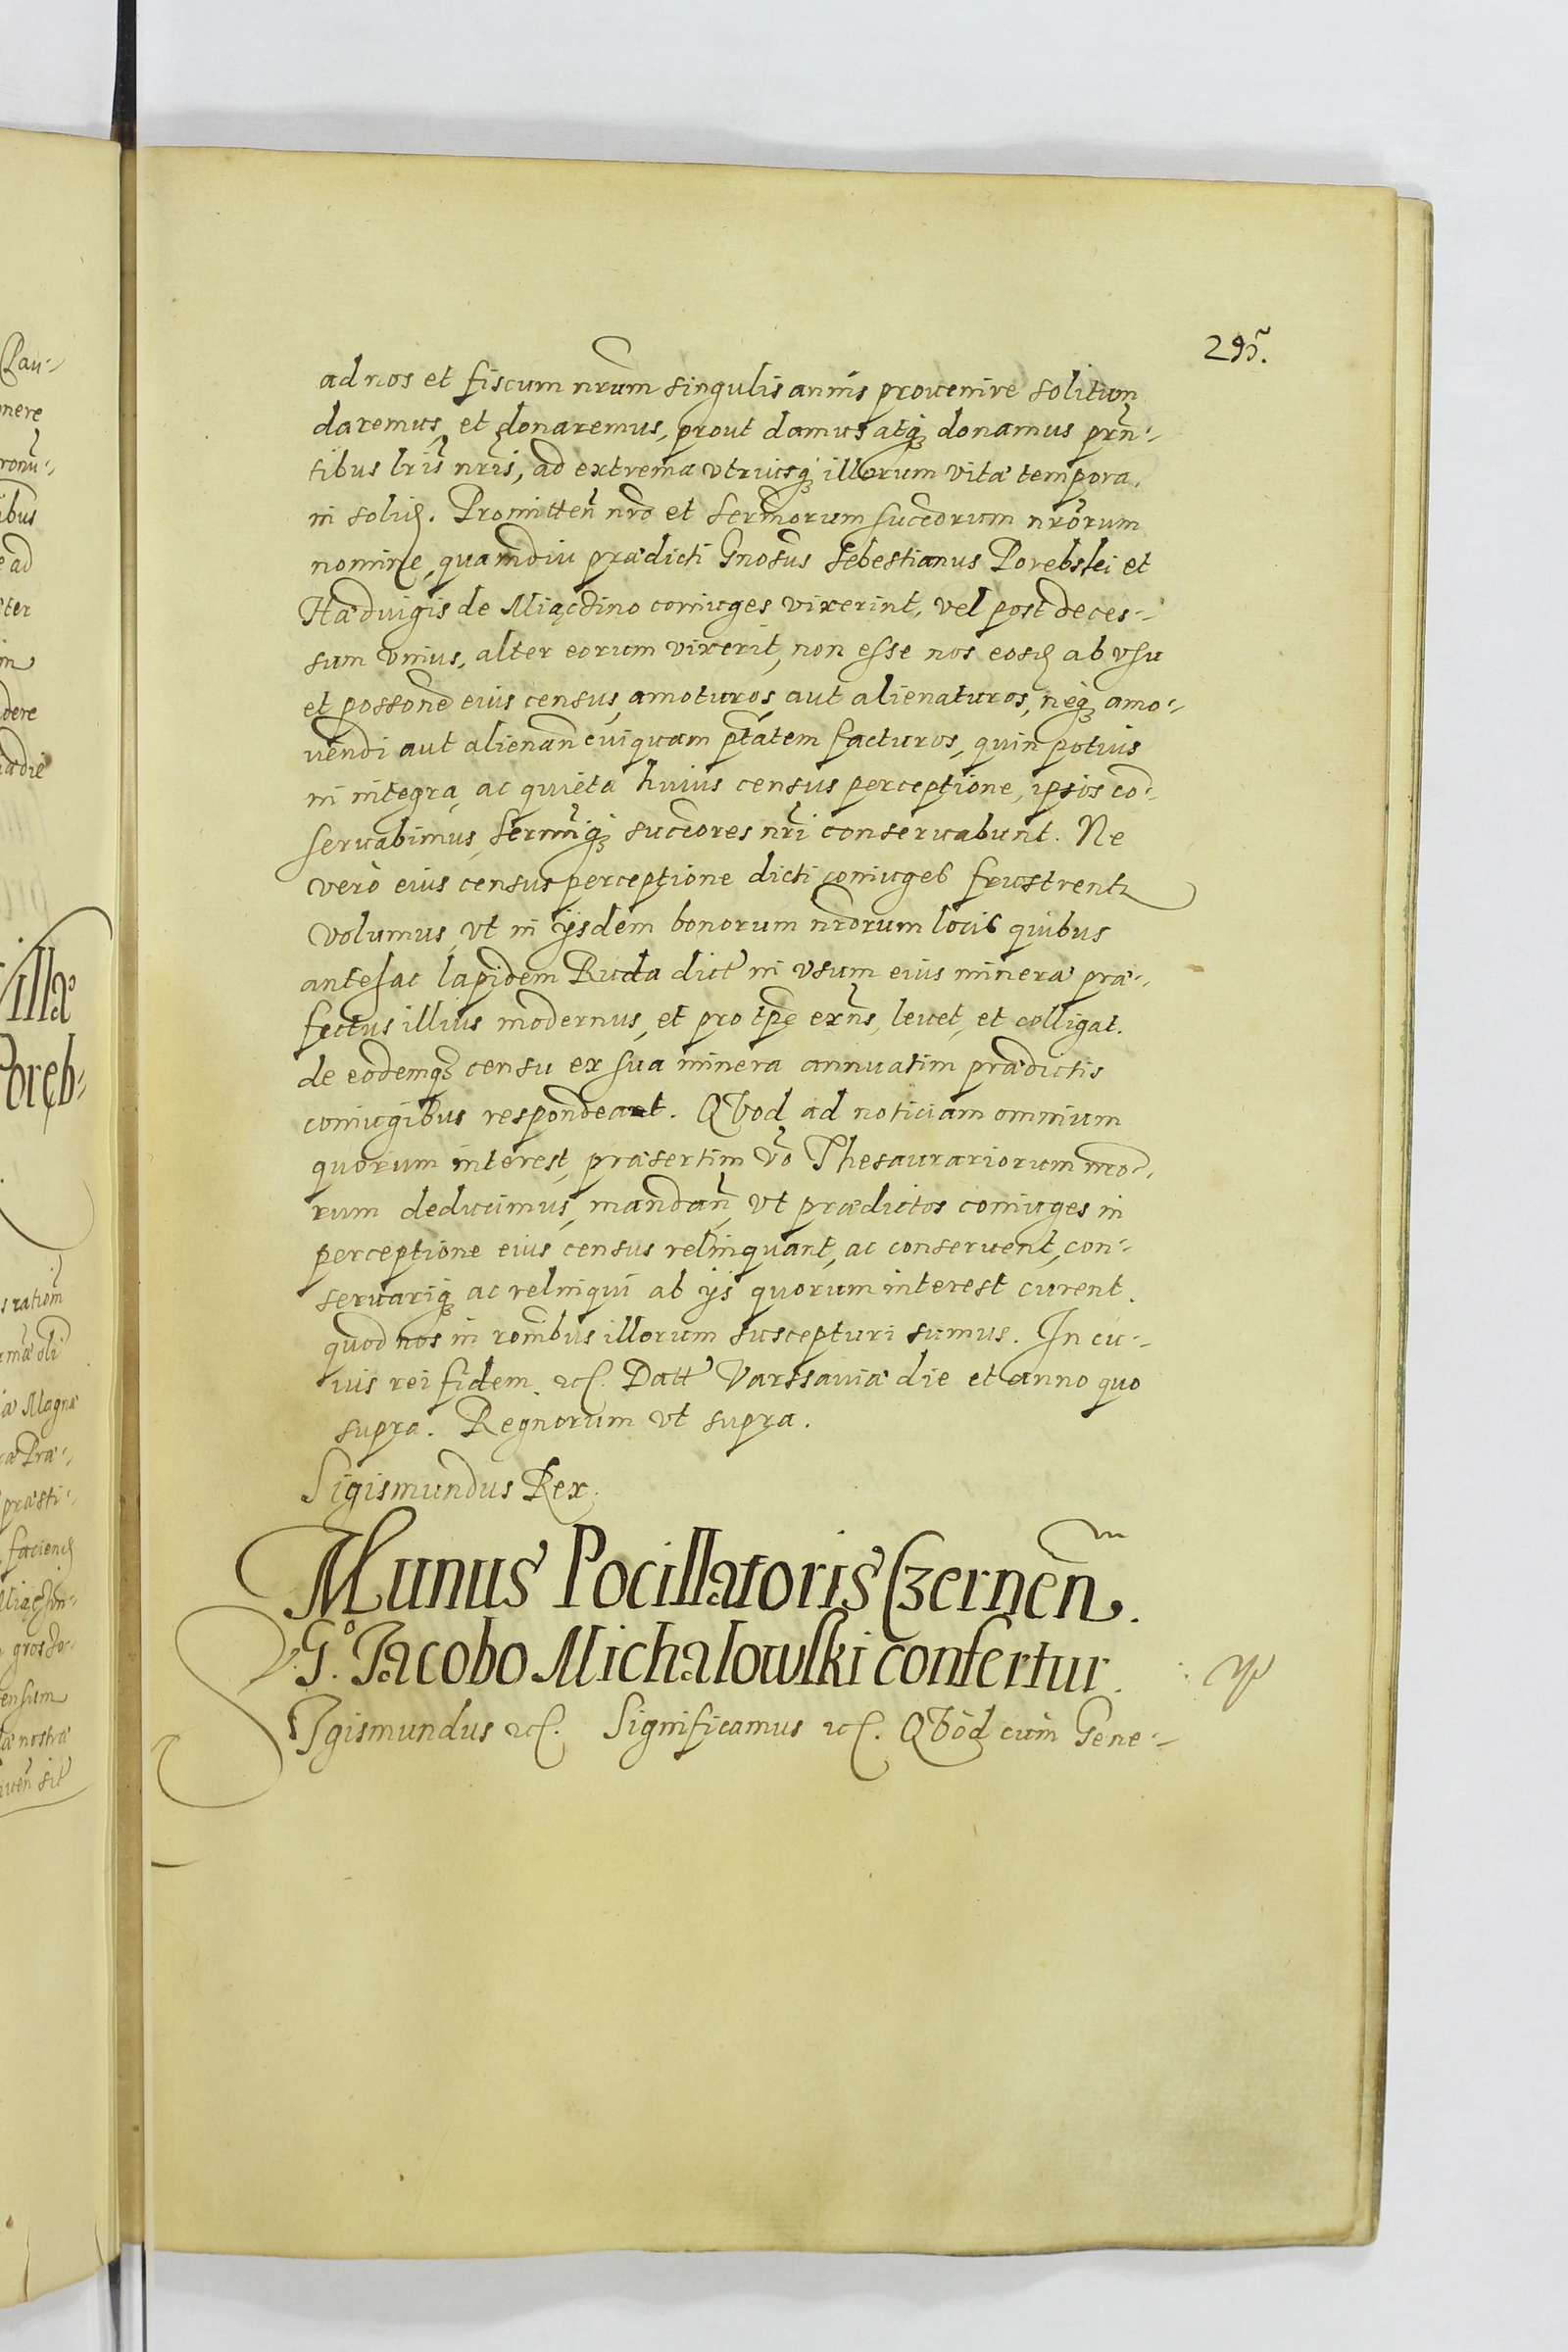 295.
ad nos et fiscum nrum singulis annis prouenire solitum
daremus, et donaremus, prout damus atq; donamus prn-
tibus lris nris, ad extrema vtriusq; illorum vitæ tempora.
in solid. Promitten nro et Sermorum succorum nrorum
nomine, quamdiu prædicti Gnosus Sebestianus Porebski et
Hæduigis de Miączino coniuges vixerint, vel post deces-
sum vnius, alter eorum vixerit, non esse nos eosd ab vsu
et possone eius census, amoturos, aut alienaturos, neq; amo-
uendi aut alienan cuiquam ptatem facturos, quin potius
in integra, ac quieta huius census perceptione, ipsos co-
seruabimus, sermiq; succores nri conseruabunt. Ne
vero eius census perceptione dicti coniuges frustrentr
volumus, vt in ijsdem bonorum nrorum locis quibus
antehac lapidem Ruda dict in vsum eius mineræ præ-
fectus illius modernus, et pro tpe exns, leuet, et colligat.
de eodemq; censu ex sua minera annuatim prædictis
coniugibus respondeant. Qvod ad noticiam omnium
quorum interest, præsertim vo Thesaurariorum nro-
rum deducimus, mandan, vt prædictos coniuges in
perceptione eius census relinquant, ac conseruent, con-
seruariq; ac relinqui ab ijs quorum interest curent.
quod nos in ronibus illorum suscepturi sumus. In cu-
ius rei fidem etc. Datt Varssauiæ die et anno quo
supra. Regnorum vt supra.
Sigismundus Rex.
Munus Pocillatoris Czernen.
G. Jacobo Michalowski confertur.
SIgismundus etc. Significamus etc. Qvod cum Gene-